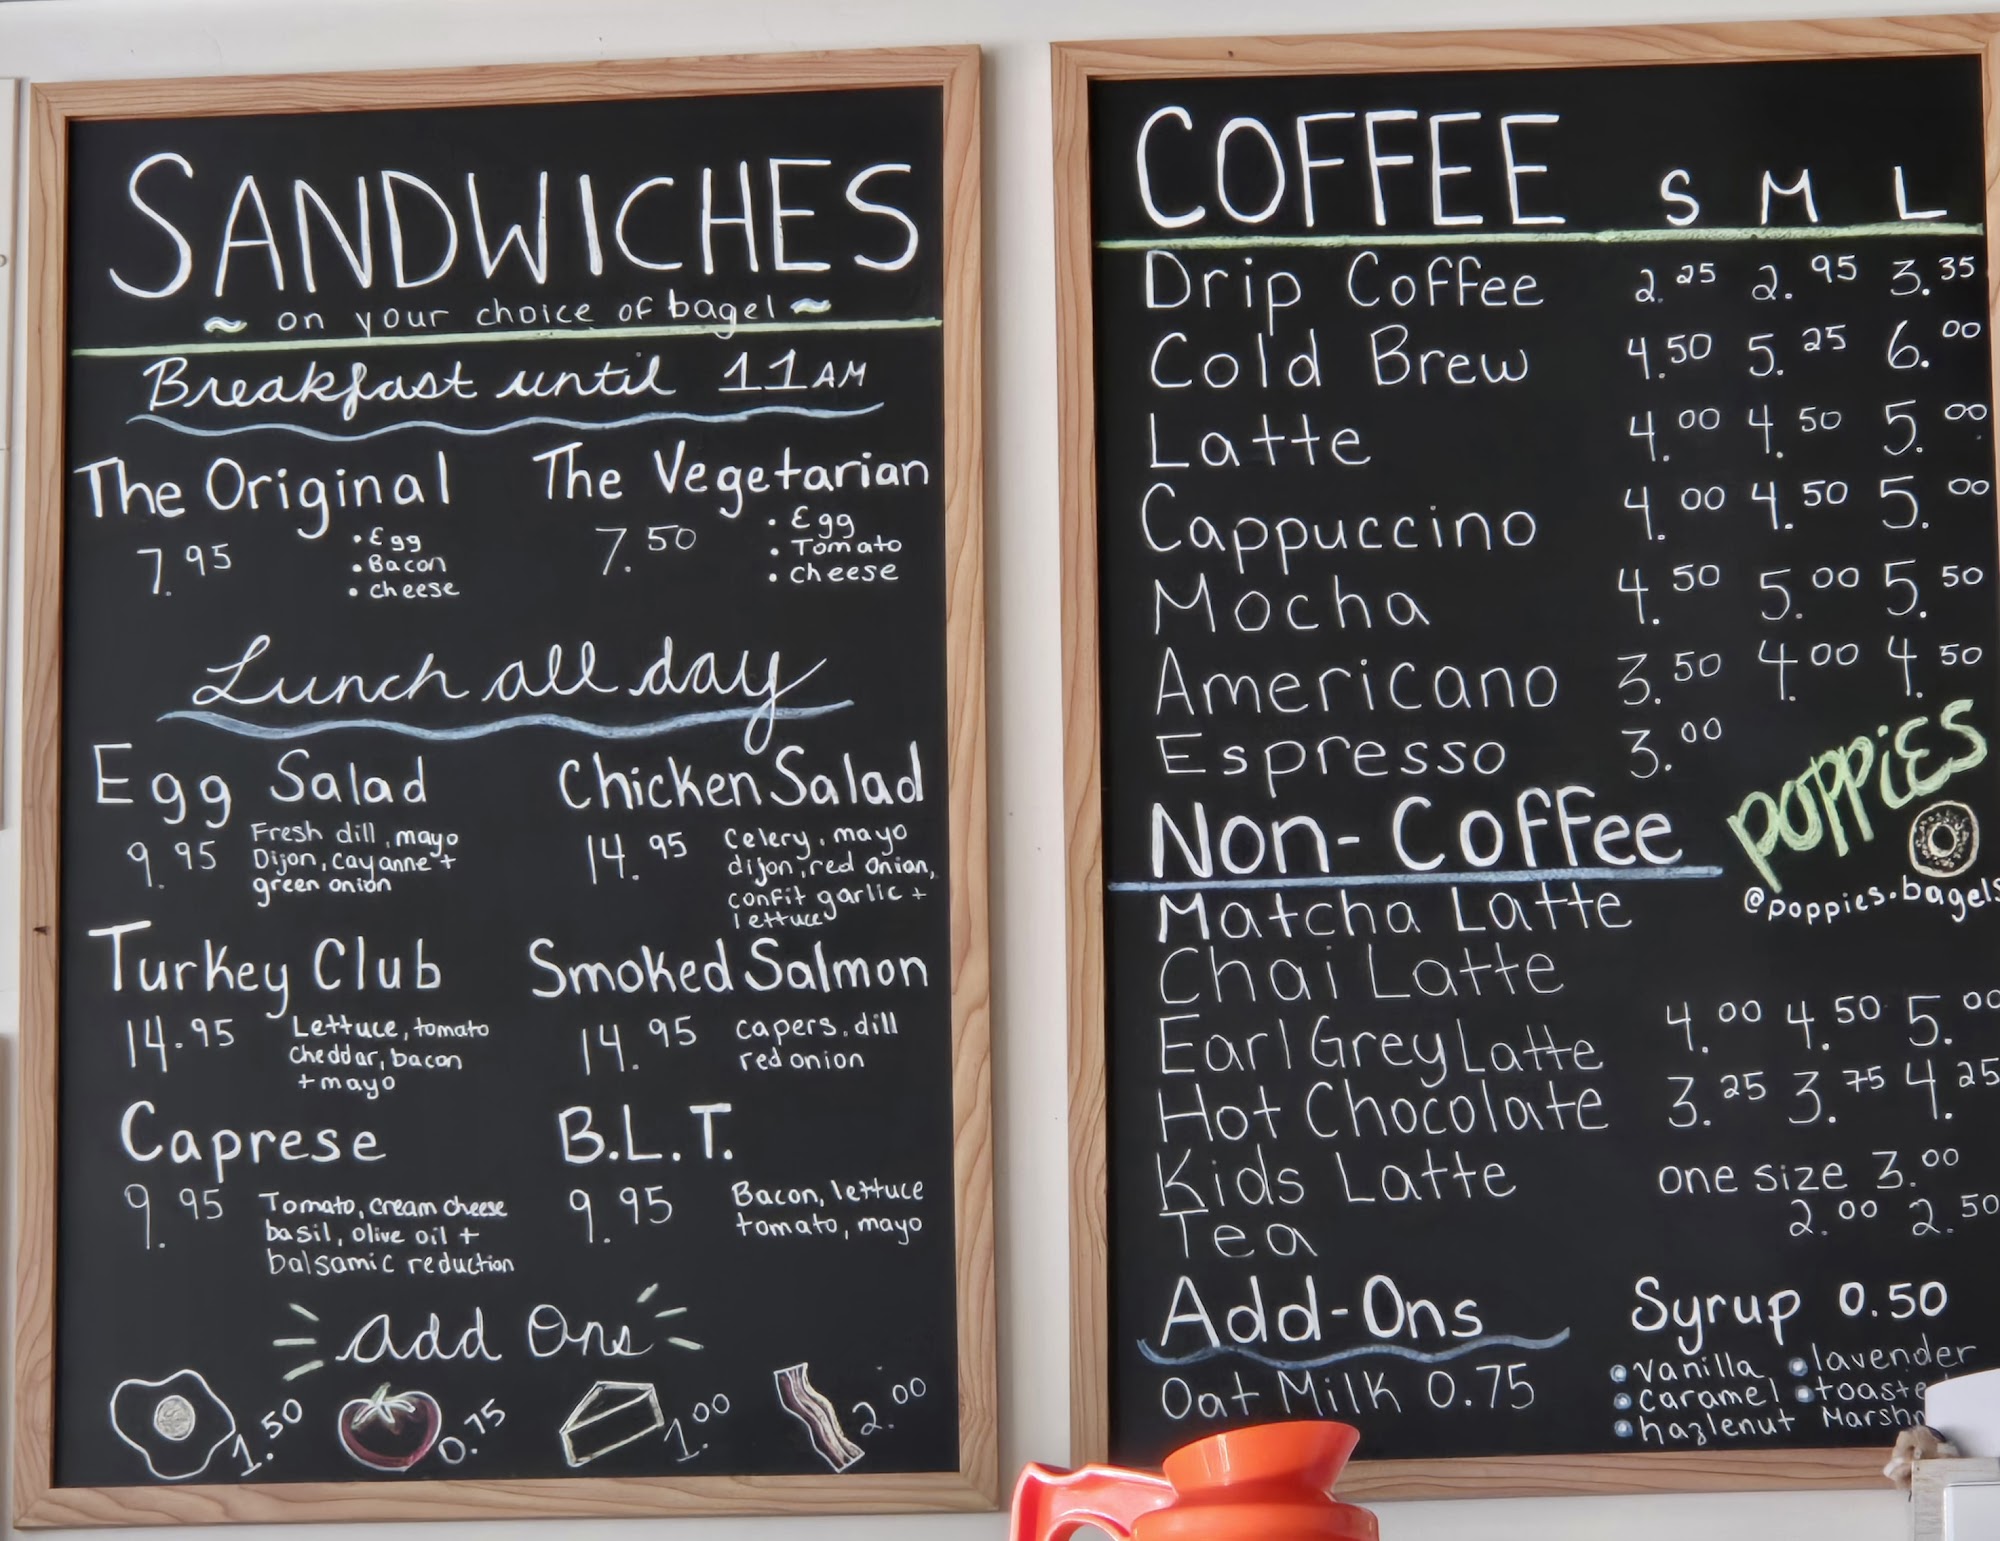 SANDWICHES
~ on your choice of bagel ~
Breakfast until 11AM
The Original
7.95
• Egg
• Bacon
• cheese
The Vegetarian
7.50
• Egg
• Tomato
• cheese
Lunch all day
Egg Salad
9.95
Fresh dill, mayo
Dijon, cayanne +
green onion
Chicken Salad
14.95
celery, mayo
dijon, red onion,
confit garlic +
lettuce
Turkey Club
14.95
Lettuce, tomato
cheddar, bacon
+ mayo
Smoked Salmon
14.95
capers, dill
red onion
Caprese
9.95
Tomato, cream cheese
basil, olive oil +
balsamic reduction
B.L.T.
9.95
Bacon, lettuce
tomato, mayo
add Ons
1.50
0.75
1.00
2.00
COFFEE S M L
Drip Coffee 2.25 2.95 3.35
Cold Brew 4.50 5.25 6.00
Latte 4.00 4.50 5.00
Cappuccino 4.00 4.50 5.00
Mocha 4.50 5.00 5.50
Americano 3.50 4.00 4.50
Espresso 3.00
POPPiES
@poppies.bagels
Non-Coffee
Matcha Latte
Chai Latte
Earl Grey Latte 4.00 4.50 5.00
Hot Chocolate 3.25 3.75 4.25
Kids Latte one size 3.00
Tea 2.00 2.50
Add-Ons
Oat Milk 0.75
Syrup 0.50
• vanilla • lavender
• caramel
• hazlenut